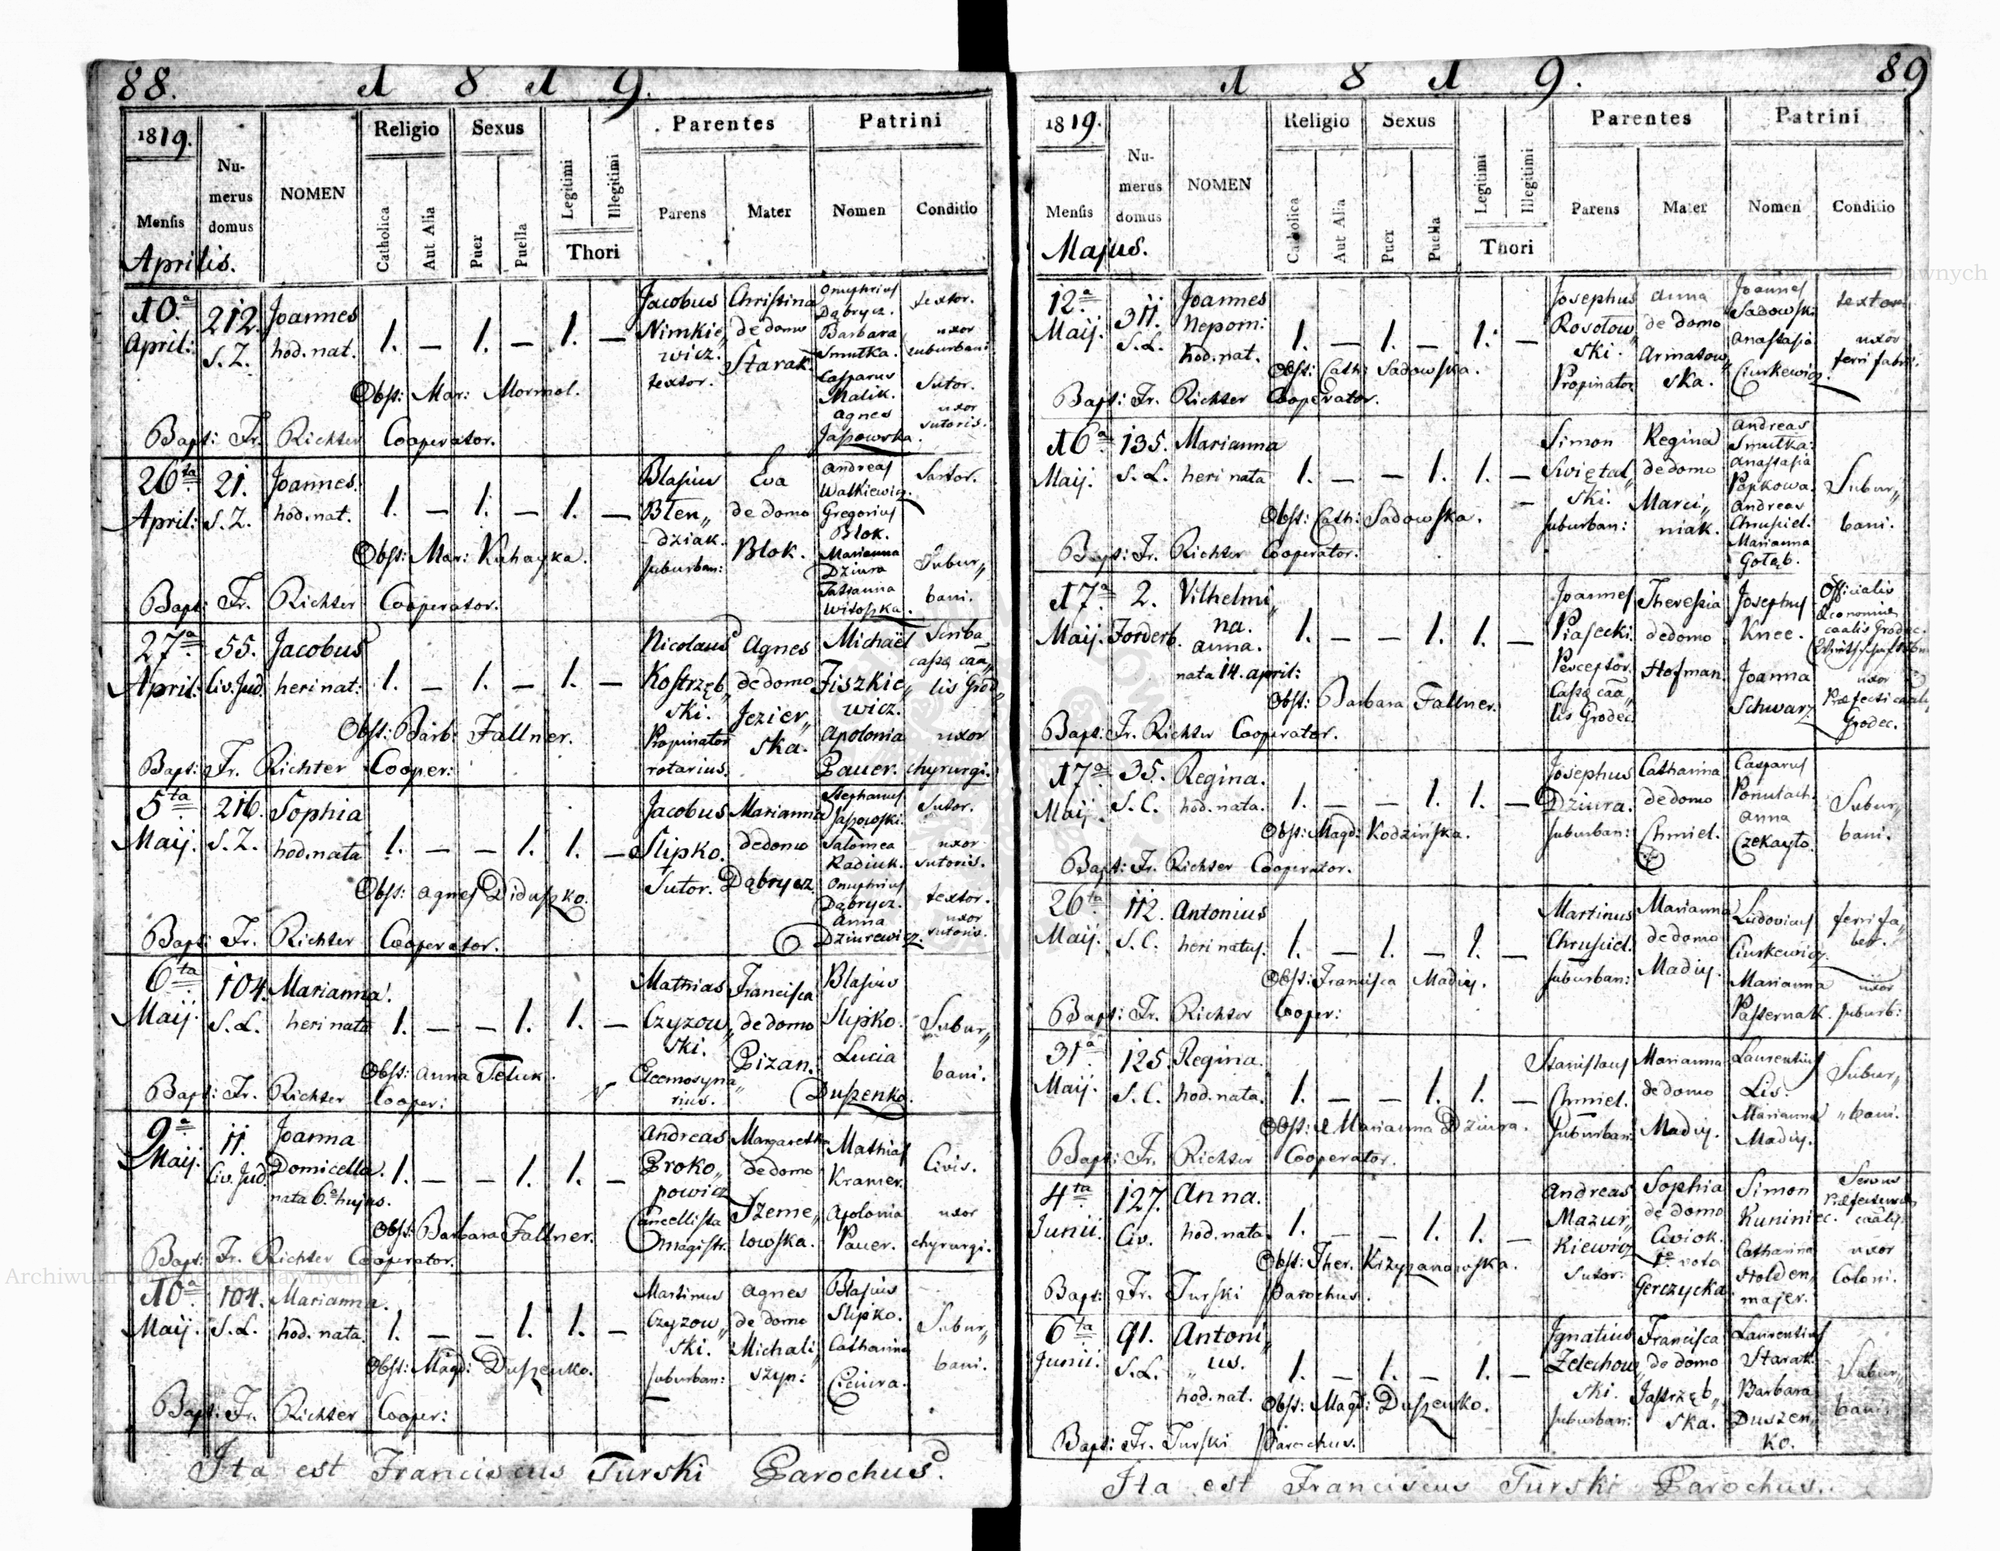 88. 1 8 1 9.
1819.
Mensis
Aprilis.
Numerus domus
NOMEN
Religio
Catholica
Aut Alia
Sexus
Puer
Puella
Legitimi
Illegitimi
Thori
Parentes
Parens
Mater
Patrini
Nomen
Conditio
10ª April:
212. S. Z.
Joannes
hod. nat.
1. — 1. — 1. —
Jacobus
Nimkie„
wicz.
textor.
Christina
de domo
Starak
Onuphrius
Dąbrycz.
Barbara
Smutka.
Casparus
Malik.
Agnes
Jasowska.
textor.
uxor
suburbani
Sutor.
uxor
sutoris.
Obst: Mar: Mormol.
Bapt: Fr. Richter Cooperator.
26ta April:
21. S. Z.
Joannes.
hod. nat.
1. — 1. — 1. —
Blasius
Błen„
dziak.
suburban:
Eva
de domo
Blok.
Andreas
Walkiewicz.
Gregorius
Blok.
Marianna
Dziura
Tatianna
Sartor.
Subur„
bani.
Bapt: Fr. Richter Cooperator.
27ª April:
55. Civ. Jud.
Jacobus
heri nat:
1. — 1. — 1. —
Nicolaus
Kostrzęb„
ski.
Propinator
Agnes
de domo
Jezier„
ska.
Michaël
Fiszkie„
wicz.
Apolonia
Pauer.
Scriba
cassæ caa„
lis Grod„
uxor
chyrurgi.
Obst: Barb: Fallner.
Bapt: Fr. Richter Cooper:
5ta Maij.
216. S. Z.
Sophia
hod. nata
1. — — 1. 1. —
Jacobus
Slipko.
Sutor.
Marianna
de domo
Dąbrycz
Stephanus
Jasowski.
Salomea
Radiuk.
Onuphrius
Dąbrycz.
Anna
Dziurewicz.
Sutor.
uxor
sutoris.
textor.
uxor
sutoris.
Obst: Agnes Diduszko.
Bapt: Fr. Richter Cooperator.
6ta Maij.
104. S. L.
Marianna.
heri nata
1. — — 1. 1. —
Mathias
Czyzow„
ski.
Eleemosyna„
rius.
Francisca
de domo
Pizan.
Blasius
Slipko.
Lucia
Duszenko.
Subur„
bani.
Obst: Anna Teluk.
Bapt: Fr. Richter Cooper:
9ª Maij.
11. Civ. Jud.
Joanna
Domicella.
nata 6ª hujus.
1. — — 1. 1. —
Andreas
Proko„
powicz
Cancellista
Magistr.
Margaretha
de domo
Szeme„
lowska.
Mathias
Kramer.
Apolonia
Pauer.
Civis.
uxor
chyrurgi.
Obst: Barbara Fallner.
Bapt: Fr. Richter Cooperator.
10ª Maij.
104. S. L.
Marianna.
hod. nata.
1. — — 1. 1. —
Martinus
Czyzow„
ski.
suburban:
Agnes
de domo
Michali„
szyn:
Blasius
Slipko.
Catharina
Subur„
bani.
Obst: Magd: Duszenko.
Bapt: Fr. Richter Cooper:
Ita est Franciscus Turski Parochus.
1 8 1 9. 89
1819.
Mensis
Majus.
Numerus domus
NOMEN
Religio
Catholica
Aut Alia
Sexus
Puer
Puella
Legitimi
Illegitimi
Thori
Parentes
Parens
Mater
Patrini
Nomen
Conditio
12ª Maij.
311. S. L.
Joannes
Nepom:
hod. nat.
1. — 1. — 1. —
Josephus
Rosołow„
ski.
Propinator
Anna
de domo
Armatow„
ska.
Joannes
Sadowski
Anastasia
Ciurkewicz.
textor
uxor
ferri fabri.
Obst: Cath: Sadowska.
Bapt: Fr. Richter Cooperator.
16ª Maij.
135. S. L.
Marianna
heri nata
1. — — 1. 1. —
Simon
Swiętal„
ski.
suburban:
Regina
de domo
Marci„
niak.
Andreas
Smutka.
Anastasia
Popkowa.
Andreas
Chrusciel.
Marianna
Gołąb.
Subur„
bani.
Obst: Cath: Sadowska.
Bapt: Fr. Richter Cooperator.
17ª Maij.
2. Forderb.
Vilhelmi„
na.
Anna.
nata 14. april:
1. — — 1. 1. —
Joannes
Piasecki.
Perceptor
Cassæ caa„
lis Grodec.
Theressia
de domo
Hofman.
Josephus
Knee.
Joanna
Schwarz
Officialis
Œconomiæ
caalis Grodec.
uxor
Præfecti caalis
Grodec.
Obst: Barbara Fallner.
Bapt: Fr. Richter Cooperator.
17ª Maij.
35. S. C.
Regina.
hod. nata.
1. — — 1. 1. —
Josephus
Dziura.
suburban:
Catharina
de domo
Chmiel.
Casparus
Ponulach.
Anna
Czekayło.
Subur„
bani.
Obst: Magd: Kodzińska.
Bapt: Fr. Richter Cooperator.
26ta Maij.
112. S. C.
Antonius
heri natus.
1. — 1. — 1. —
Martinus
Chrusciel.
suburban:
Marianna
de domo
Madiy.
Ludovicus
Ciurkewicz.
Marianna
Pasternak.
ferri fa„
ber.
uxor
suburb:
Obst: Francisca Madiy.
Bapt: Fr. Richter Cooper:
31ª Maij.
125. S. C.
Regina.
hod. nata.
1. — — 1. 1. —
Stanislaus
Chmiel.
suburban:
Marianna
de domo
Madiy.
Laurentius
Lis.
Marianna
Madiy.
Subur„
bani.
Obst: Marianna Dziura.
Bapt: Fr. Richter Cooperator.
4ta Junii.
127. Civ.
Anna.
hod. nata
1. — — 1. 1. —
Andreas
Mazur„
kiewicz
Sutor.
Sophia
de domo
Cwiok.
1º voto
Gerczycka.
Simon
Kuniniec.
Catharina
Holden„
majer.
Servus
uxor
Coloni.
Obst: Ther. Krzyzanowska.
Bapt: Fr. Turski Parochus.
6ta Junii.
91. S. L.
Antoni„
us.
hod. nat.
1. — 1. — 1. —
Ignatius
Zelechow„
ski.
suburban:
Francisca
de domo
Jastrzęb„
ska.
Laurentius
Starak.
Barbara
Duszen„
ko.
Subur„
bani.
Obst: Magd: Duszenko.
Bapt: Fr. Turski Parochus.
Ita est Franciscus Turski Parochus.